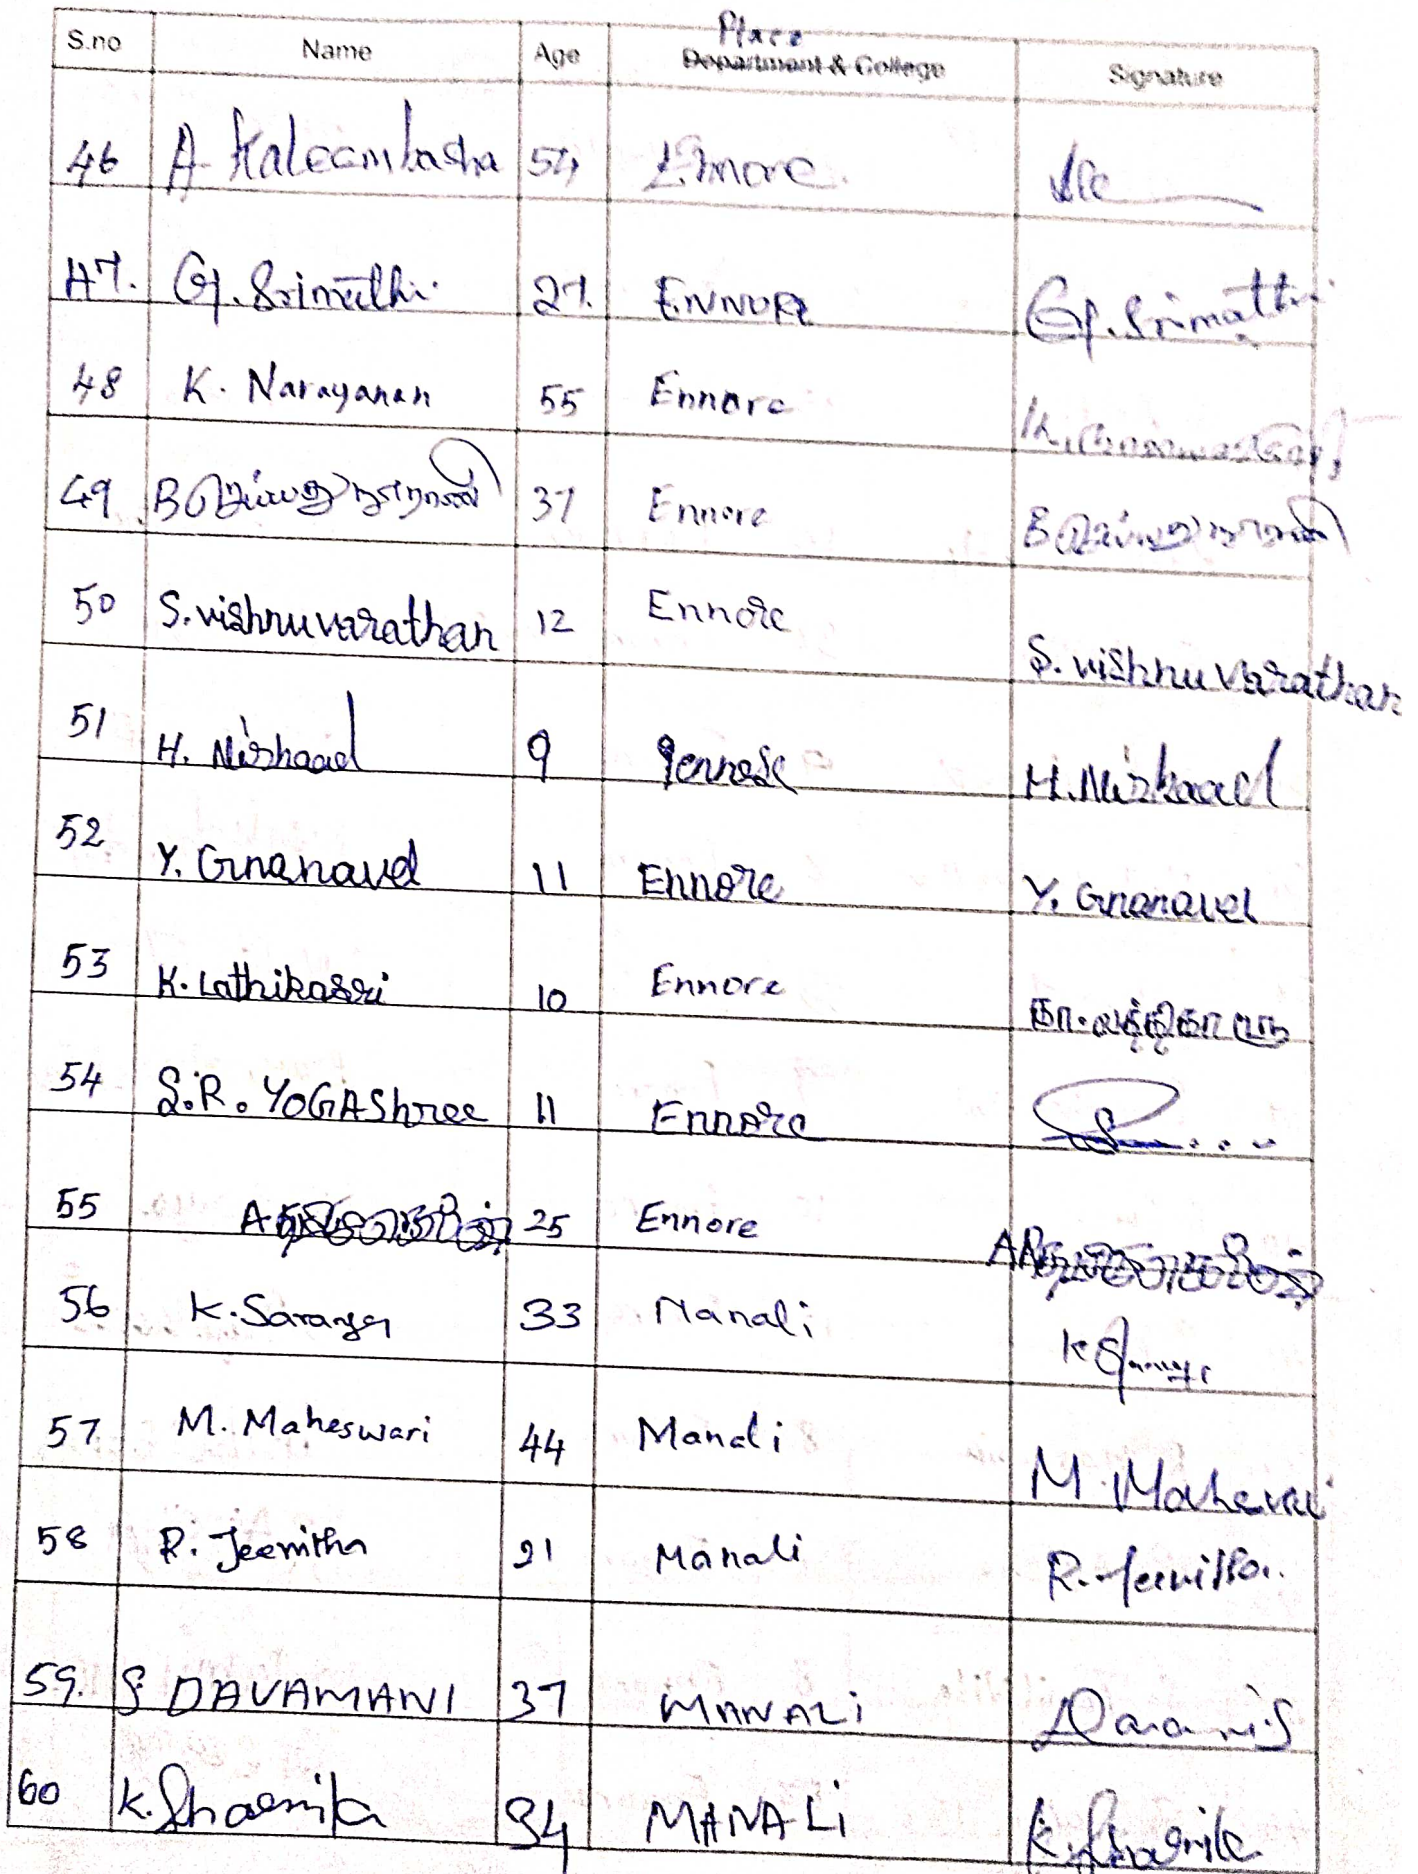 Place
S.no Name Age Department & College Signature
46 A Kaleembasha 54 Ennore
47. G. Srimathi 27. ENNOR G. Srimathi
48 K. Narayanan 55 Ennore K.
49 B 37 Ennore B
50 S. vishnuvarathan 12 Ennore S. vishnuvarathan
51 H. Nishaad 9 H. Nishaad
52 Y. Gnanavel 11 Ennore Y. Gnanavel
53 K. Lathikasri 10 Ennore
54 S.R. YOGAShree 11 Ennore
55 A 25 Ennore
56 K. Saranya 33 Manali
57 M. Maheswari 44 Manali M. Maheswari
58 R. Jeevitha 21 Manali R. Jeevitha
59. S DAVAMANI 37 MANALi
60 K. Sharmila 34 MANALi K. Sharmila